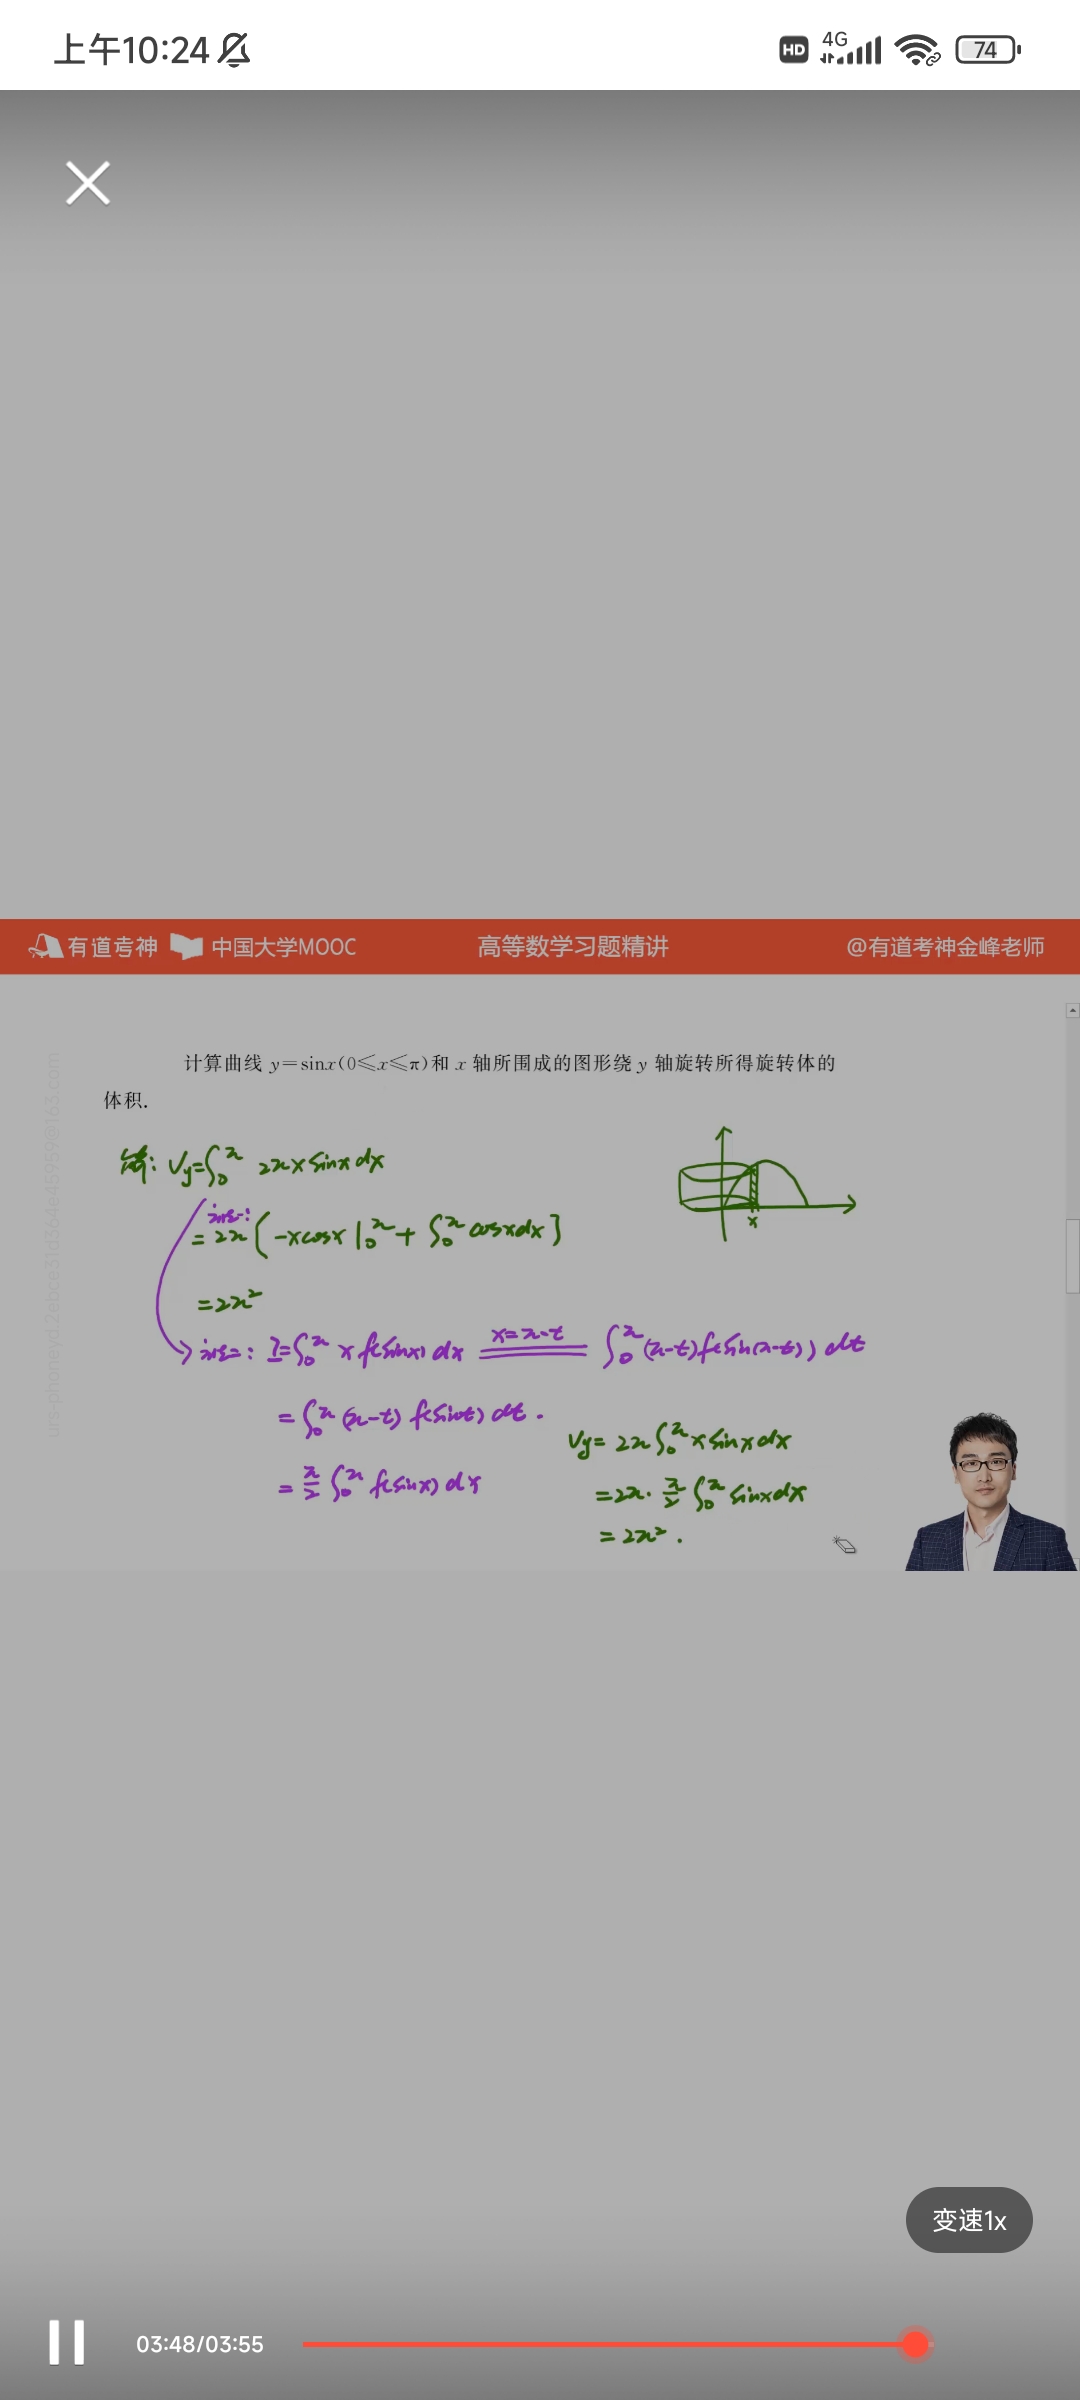 上午10:24 HD 4G 74
有道考神 中国大学MOOC 高等数学习题精讲 @有道考神金峰老师
计算曲线 y=sinx(0≤x≤π)和 x 轴所围成的图形绕 y 轴旋转所得旋转体的
体积.
解: Vy=∫₀^π 2πx sinx dx
法一:
= 2π[-xcosx|₀^π + ∫₀^π cosxdx]
x
=2π²
法二: I=∫₀^π x f(sinx) dx x=π-t ∫₀^π (π-t)f(sin(π-t)) dt
=∫₀^π (π-t) f(sint) dt.
= π/2 ∫₀^π f(sinx) dx
Vy= 2π∫₀^π x sinx dx
=2π·π/2 ∫₀^π sinxdx
= 2π².
变速1x
03:48/03:55